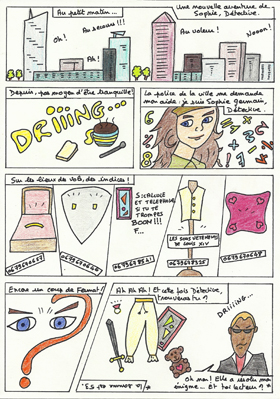 Au petit matin...
Une nouvelle aventure de
Sophie, Détective.
Oh!
Au secours!!!
Ah!
Au voleur!
Noooon!
Depuis, pas moyen d'être tranquille!
DRiiiNG...
La police de la ville me demande
mon aide: je suis Sophie Germain,
Détective.
Sur les lieux des vols, des indices!
SI CALCULE
ET TELEPHONE
SI TU TE
TROMPES
BOOM!!!
F...
LES SOUS VETEMENTS
DE LOUIS XIV
Encore un coup de Fermat!
Ah Ah Ah! Et cette fois Détective,
trouveras-tu?
DRiiiiNG...
Oh non! Elle a résolu mon
énigme... Et toi lecteur? *